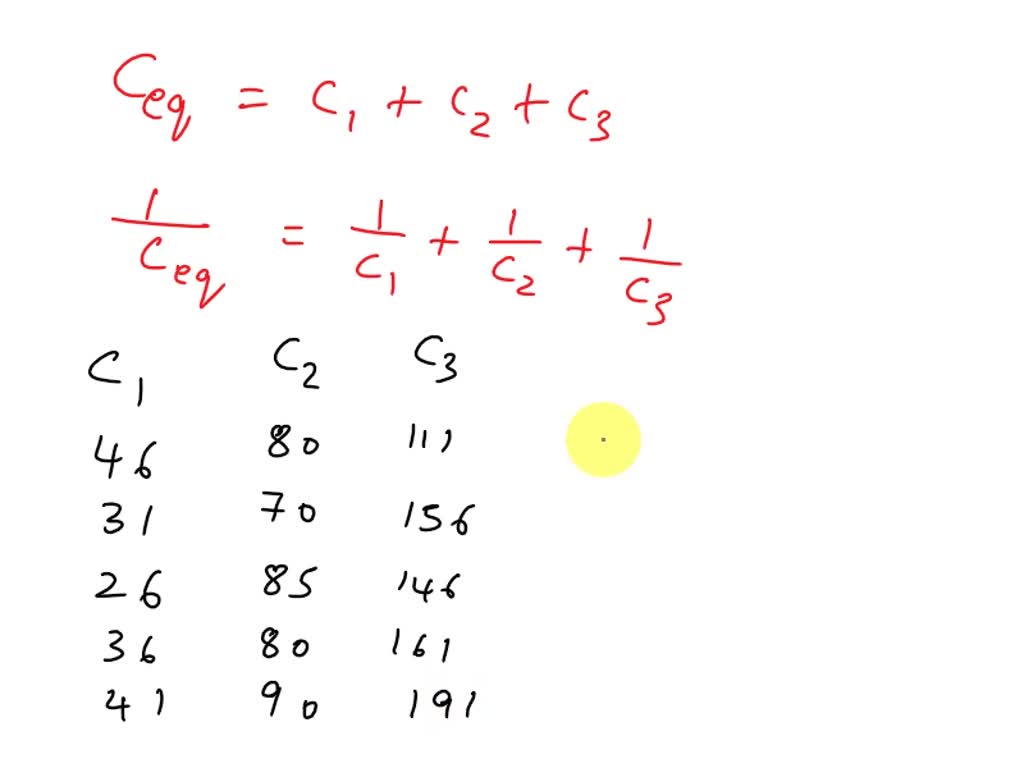 Ceq = C1 + C2 + C3
1/Ceq = 1/C1 + 1/C2 + 1/C3
C1 C2 C3
46 80 111
31 70 156
26 85 146
36 80 161
41 90 191